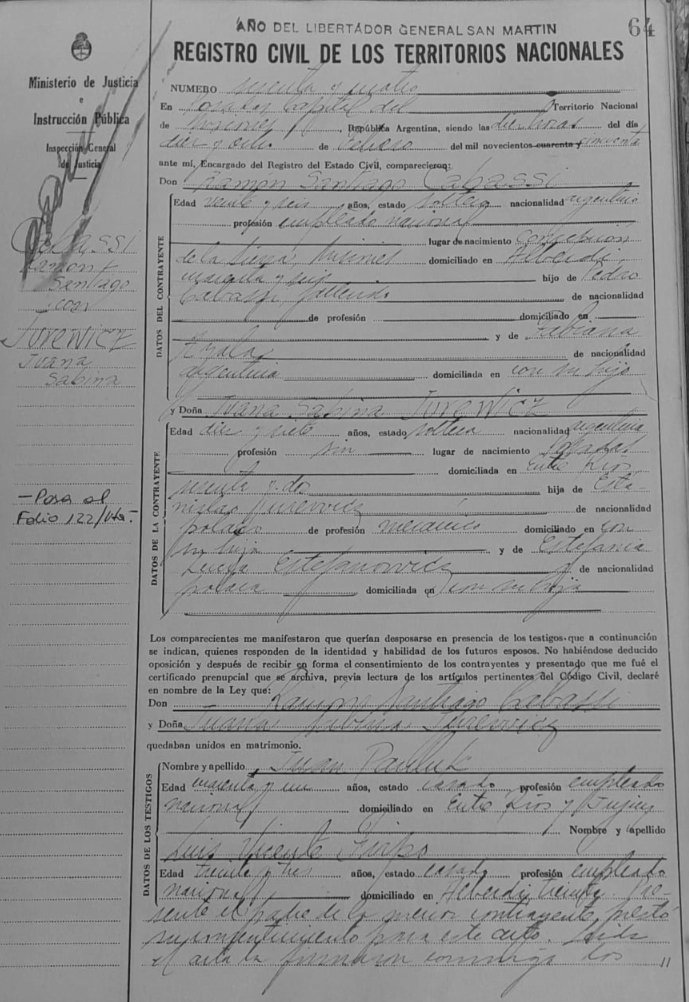 AÑO DEL LIBERTADOR GENERAL SAN MARTIN
64
REGISTRO CIVIL DE LOS TERRITORIOS NACIONALES
Ministerio de Justicia
e
Instrucción Pública
Inspección General
de Justicia
CABASSI
Ramón
Santiago
con
JUREWICZ
Juana
Sabina
- Pasa al
Folio 122/Vta.-
NUMERO sesenta y cuatro
En Posadas Capital del Territorio Nacional
de Misiones, República Argentina, siendo las diez horas del día
diez y ocho de Febrero del mil novecientos cuarenta y cincuenta
ante mí, Encargado del Registro del Estado Civil, comparecieron:
Don Ramón Santiago CABASSI
DATOS DEL CONTRAYENTE
Edad veinte y seis años, estado soltero nacionalidad argentino
profesión empleado nacional
lugar de nacimiento Concepción
de la Sierra, Misiones domiciliado en Alberdi
cuarenta y seis hijo de Pedro
Cabassi fallecido de nacionalidad
de profesión domiciliado en
y de Fabiana
de nacionalidad
argentina domiciliada en con su hijo
y Doña Juana Sabina JUREWICZ
DATOS DE LA CONTRAYENTE
Edad diez y siete años, estado soltera nacionalidad argentina
profesión sin lugar de nacimiento Posadas
domiciliada en Entre Ríos
y dos hija de Esta
nislao Jurewicz de nacionalidad
polaco de profesión mecánico domiciliado en con
su hija y de Estefania
Estefanowicz de nacionalidad
polaca domiciliada en con su hija
Los comparecientes me manifestaron que querían desposarse en presencia de los testigos que a continuación
se indican, quienes responden de la identidad y habilidad de los futuros esposos. No habiéndose deducido
oposición y después de recibir en forma el consentimiento de los contrayentes y presentado que me fué el
certificado prenupcial que se archiva, previa lectura de los artículos pertinentes del Código Civil, declaré
en nombre de la Ley que:
Don Ramón Santiago Cabassi
y Doña Juana Sabina Jurewicz
quedaban unidos en matrimonio.
DATOS DE LOS TESTIGOS
Nombre y apellido Juan Pauluk
Edad cuarenta y un años, estado casado profesión empleado
nacional domiciliado en Entre Ríos y Jujuy
Nombre y apellido
Luis Vicente
Edad treinta y tres años, estado casado profesión empleado
nacional domiciliado en Alberdi treinta. Pre
sente el padre de la menor contrayente prestó
su consentimiento para este acto. Leída
el acta la firmaron conmigo los